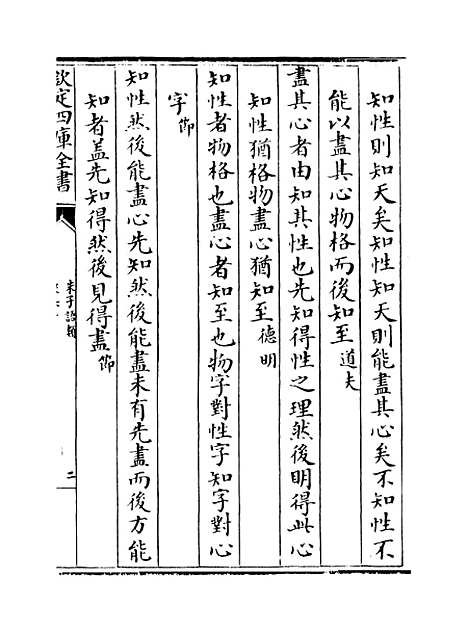 知性則知天矣知性知天則能盡其心矣不知性不
能以盡其心物格而後知至道夫
盡其心者由知其性也先知得性之理然後明得此心
知性猶格物盡心猶知至德明
知性者物格也盡心者知至也物字對性字知字對心
字節
知性然後能盡心先知然後能盡未有先盡而後方能
知者盖先知得然後見得盡節
欽定四庫全書
朱子語類
二